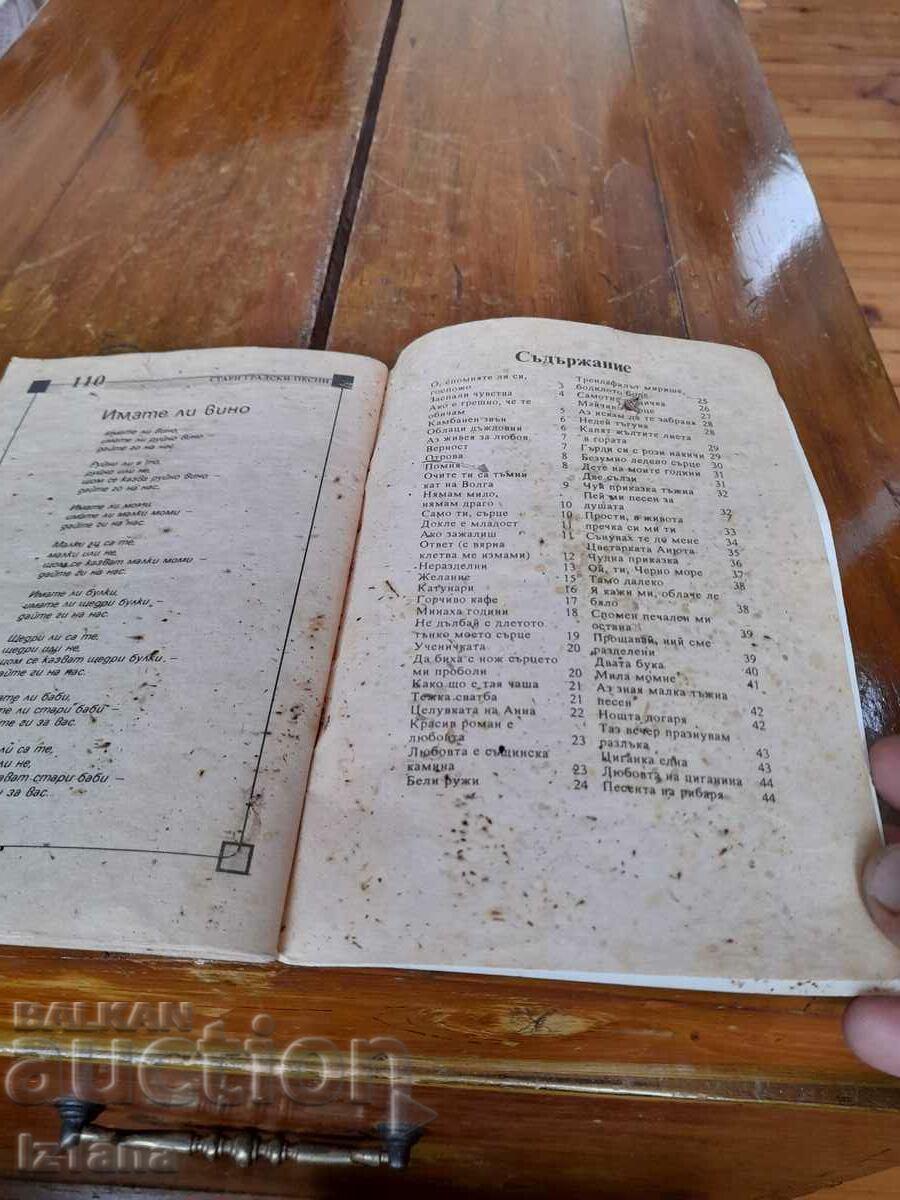 110
СТАРИ ГРАДСКИ ПЕСНИ
Имате ли вино
имате ли вино,
имате ли руйно вино
дайте ги на нас.
Руйно ли е то,
руйно или не,
щом се казва руйно вино
дайте ги на нас.
Имате ли моми,
имате ли малки моми –
дайте ги на нас.
Малки ли са те,
малки или не,
щом се казват малки моми
дайте ги на нас.
Имате ли булки,
имате ли щедри булки, –
дайте ги на нас.
Щедри ли са те,
щедри или не,
щом се казват щедри булки, –
дайте ги на нас.
те ли баби,
те ли стари баби –
те ги за вас.
ли са те,
ли не,
казват стари баби –
и за вас.
Съдържание
О, спомняте ли си,
госпожо 3
Заспали чувства 4
Ако е грешно, че те
обичам 5
Камбанен звън 6
Облаци дъждовни 6
Аз живея за любов 7
Верност 7
Отрова 8
Помня 8
Очите ти са тъмни
кат на Волга 9
Нямам мило,
нямам драго 10
Само ти, сърце 10
Докле е младост 11
Ако зажалиш 11
Ответ (с вярна
клетва ме измами) 12
Неразделни 13
Желание 15
Катунари 16
Горчиво кафе 17
Минаха години 18
Не дълбай с длетото
тънко моето сърце 19
Ученичката 20
Да биха с нож сърцето
ми проболи 20
Како що е тая чаша 21
Тежка сватба 21
Целувката на Анна 22
Красив роман е
любовта 23
Любовта е същинска
камина 23
Бели ружи 24
Трендафилът мирише,
бодилото боде 25
26
Майчино 27
Аз искам да те забравя 28
Недей тъгува 28
Капят жълтите листа
в гората 29
Гърди си с рози накичи 29
Безумно ледено сърце 30
Дете на моите години 31
Две сълзи 31
Чуй приказка тъжна 32
Пей ми песен за
душата 32
Прости, в живота
пречка си ми ти 33
Сънувах те до мене 34
Цветарката Анюта 35
Чудна приказка 36
Ой, ти, Черно море 37
Тамо далеко 38
Я кажи ми, облаче ле
бяло 38
Спомен печален ми
остана 39
Прощавай, ний сме
разделени 39
Двата бука 40
Мила момне 41
Аз зная малка тъжна
песен 42
Нощта догаря 42
Таз вечер празнувам
разлъка 43
Циганка една 43
Любовта на циганина 44
Песента на рибаря 44
BALKAN
auction
iz1ana